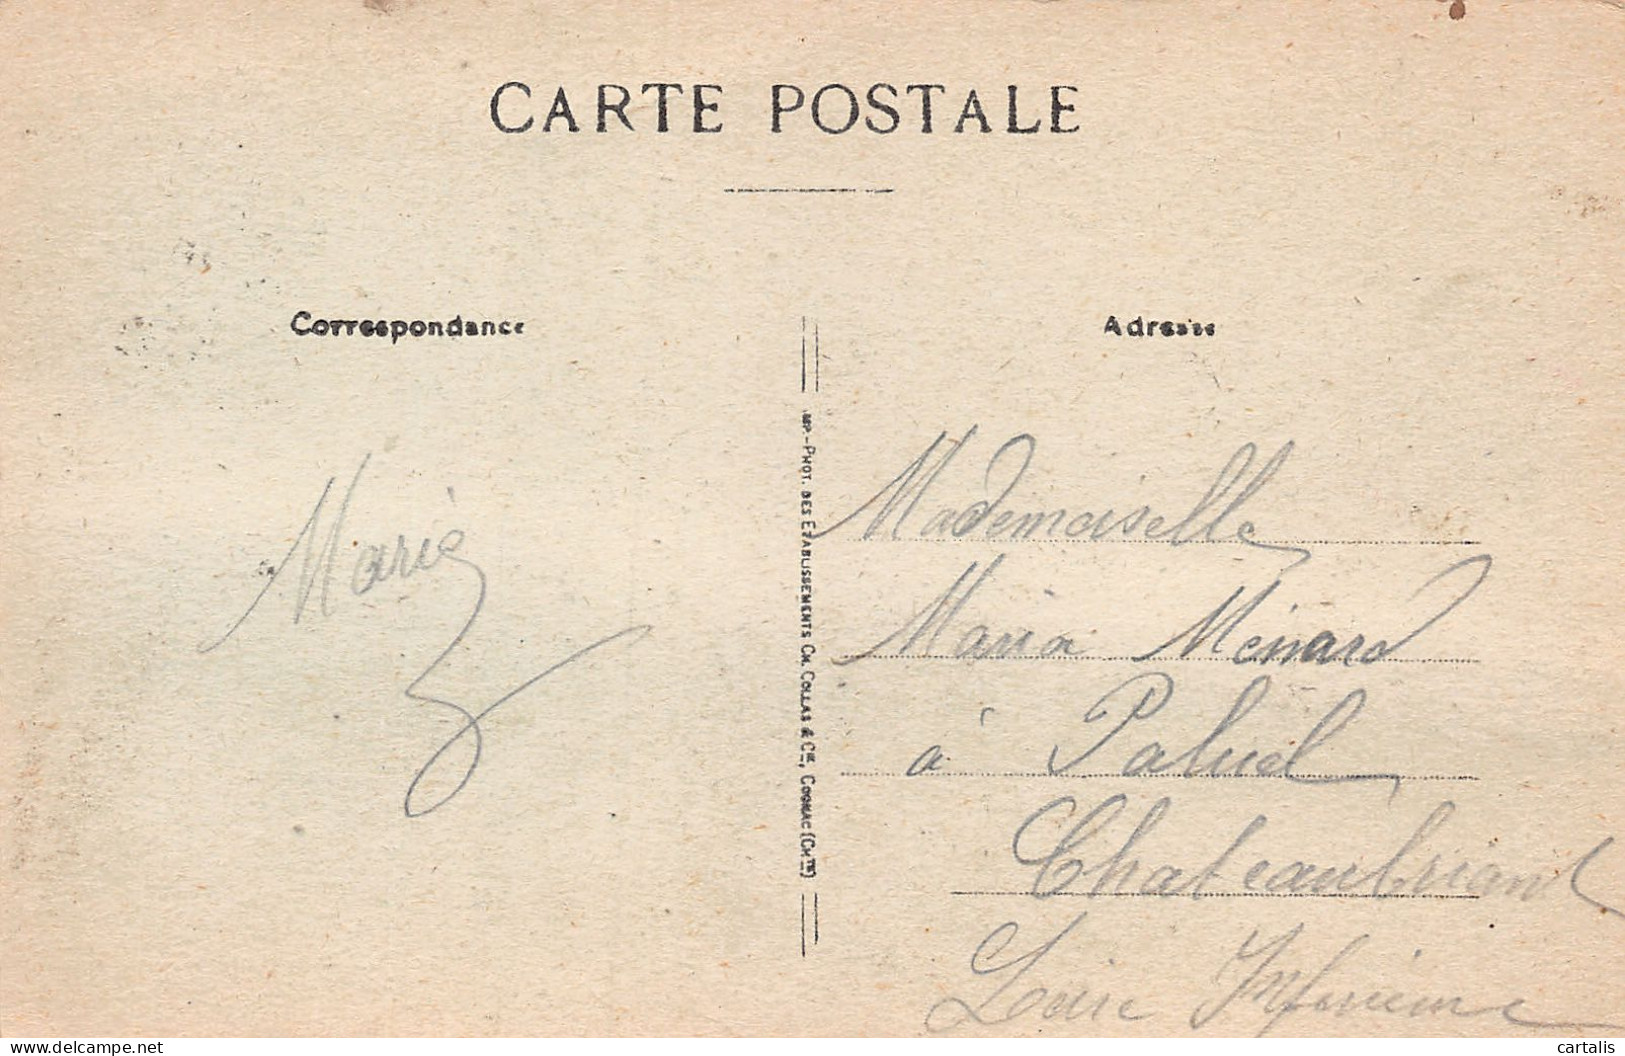 CARTE POSTALE
Correspondance
Marie
IMP.-PHOT. DES ETABLISSEMENTS CH. COLLAS & Cie, COGNAC (Chte)
Adresse
Mademoiselle
Maria Ménard
à Paluel
Chateaubriant
Loire Inférieure
www.delcampe.net
cartalis